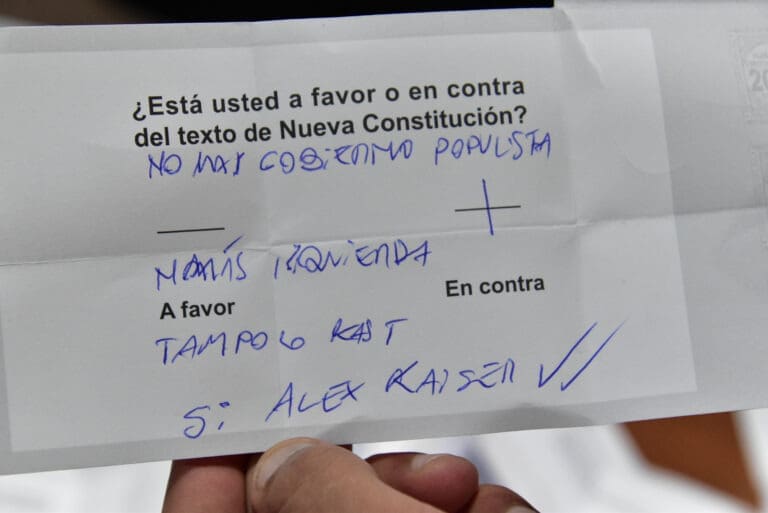 ¿Está usted a favor o en contra
del texto de Nueva Constitución?
NO MAS GOBIERNO POPULISTA
IZQUIERDA
A favor
En contra
TAMPOCO KAST
Si ALEX KAISER
20